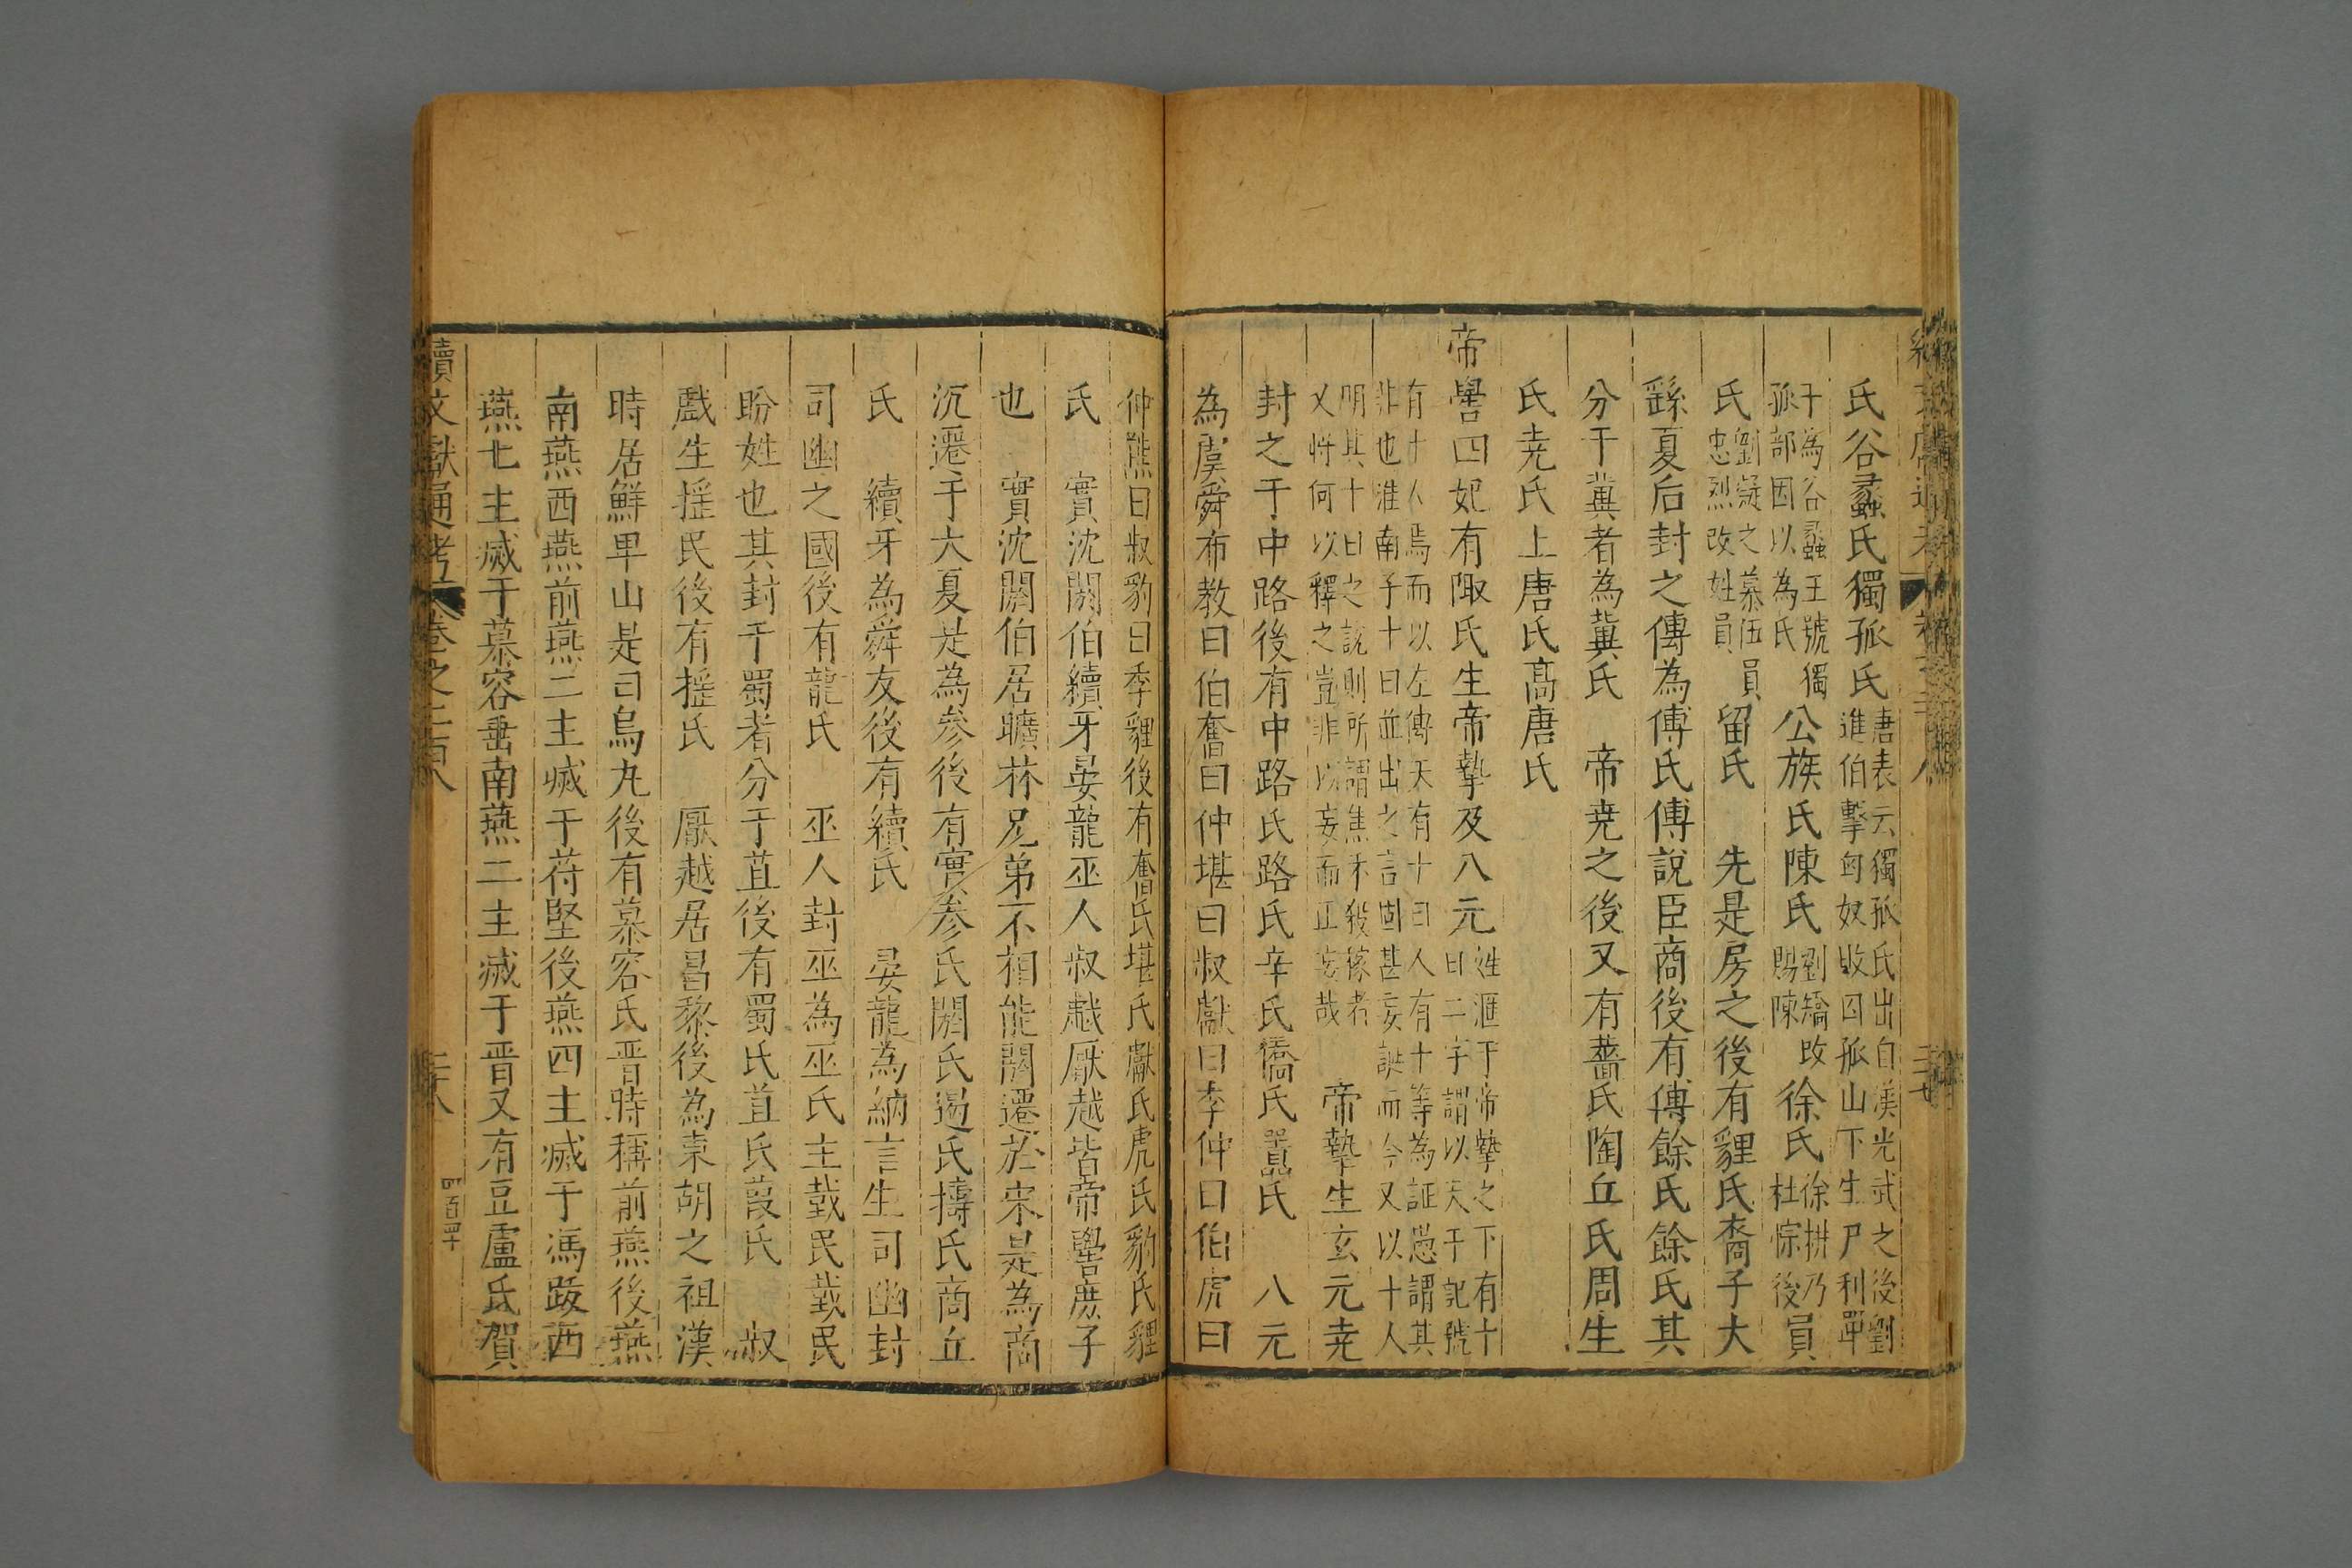 氏谷蠡氏獨孤氏唐表云獨孤氏出自漢光武之後劉
進伯擊匈奴敗囚孤山下生尸利單
于為谷蠡王號獨
孤部因以為氏公族氏陳氏劉矯改
賜陳徐氏徐拼乃
杜悰後員
氏劉凝之慕伍員
忠烈改姓員留氏 先是房之後有貍氏裔子大
繇夏后封之傅為傅氏傅說臣商後有傅餘氏餘氏其
分于冀者為冀氏 帝堯之後又有薔氏陶丘氏周生
氏堯氏上唐氏高唐氏
帝嚳四妃有陬氏生帝摯及八元姓滙于帝摯之下有十
日二字謂以天干記號
有十人焉而以左傳天有十日人有十等為証慿謂其
非也淮南子十日並出之言固甚妄誕而今又以十人
明其十日之說則所謂焦不殺稼者
又將何以釋之豈非以妄而正妄哉 帝摯生玄元堯
封之于中路後有中路氏路氏辛氏僑氏嚚氏 八元
為虞舜布教曰伯奮曰仲堪曰叔獻曰季仲曰伯虎曰
仲熊曰叔豹曰季貍後有奮氏堪氏獻氏虎氏豹氏貍
氏 實沈閼伯續牙晏龍巫人叔戱厭越皆帝嚳庶子
也 實沈閼伯居曠林兄弟不相能閼遷於宋是為商
沉遷于大夏是為參後有實參氏閼氏遏氏擣氏商丘
氏 續牙為舜友後有續氏 晏龍為納言生司幽封
司幽之國後有龍氏 巫人封巫為巫氏主臷民臷民
盼姓也其封于蜀者分于苴後有蜀氏苴氏葭氏 叔
戲生搖民後有搖氏 厭越居昌黎後為東胡之祖漢
時居鮮卑山是曰烏丸後有慕容氏晋時稱前燕後燕
南燕西燕前燕二主滅于苻堅後燕四主滅于馮跋西
燕七主滅于慕容垂南燕二主滅于晋又有豆盧氏賀
續文獻通考 卷之二百八 二十八 四百四十